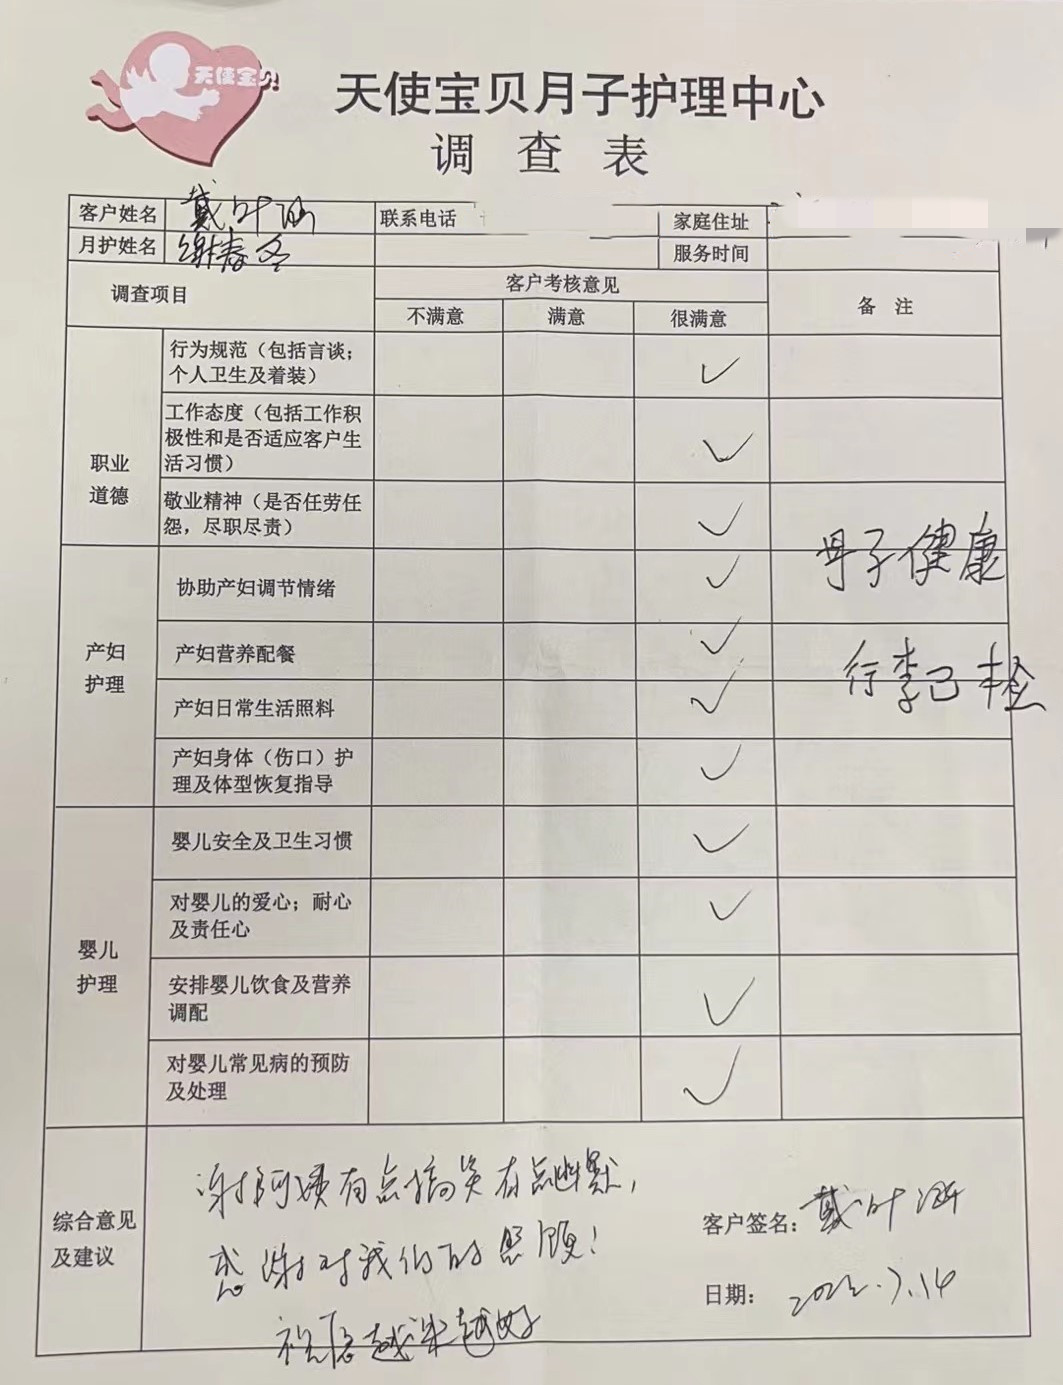 天使宝贝
天使宝贝月子护理中心
调查表
客户姓名 戴叶涵 联系电话 家庭住址
月护姓名 谢春冬 服务时间
调查项目 客户考核意见 备 注
不满意 满意 很满意
职业
道德
行为规范（包括言谈；
个人卫生及着装） ✓
工作态度（包括工作积
极性和是否适应客户生
活习惯） ✓
敬业精神（是否任劳任
怨，尽职尽责） ✓
母子健康
产妇
护理
协助产妇调节情绪 ✓
产妇营养配餐 ✓
行李已检
产妇日常生活照料 ✓
产妇身体（伤口）护
理及体型恢复指导 ✓
婴儿
护理
婴儿安全及卫生习惯 ✓
对婴儿的爱心；耐心
及责任心 ✓
安排婴儿饮食及营养
调配 ✓
对婴儿常见病的预防
及处理 ✓
综合意见
及建议
谢阿姨有点搞笑有点幽默，
感谢对我们的照顾！
越来越好
客户签名：戴叶涵
日期： 2022.7.14